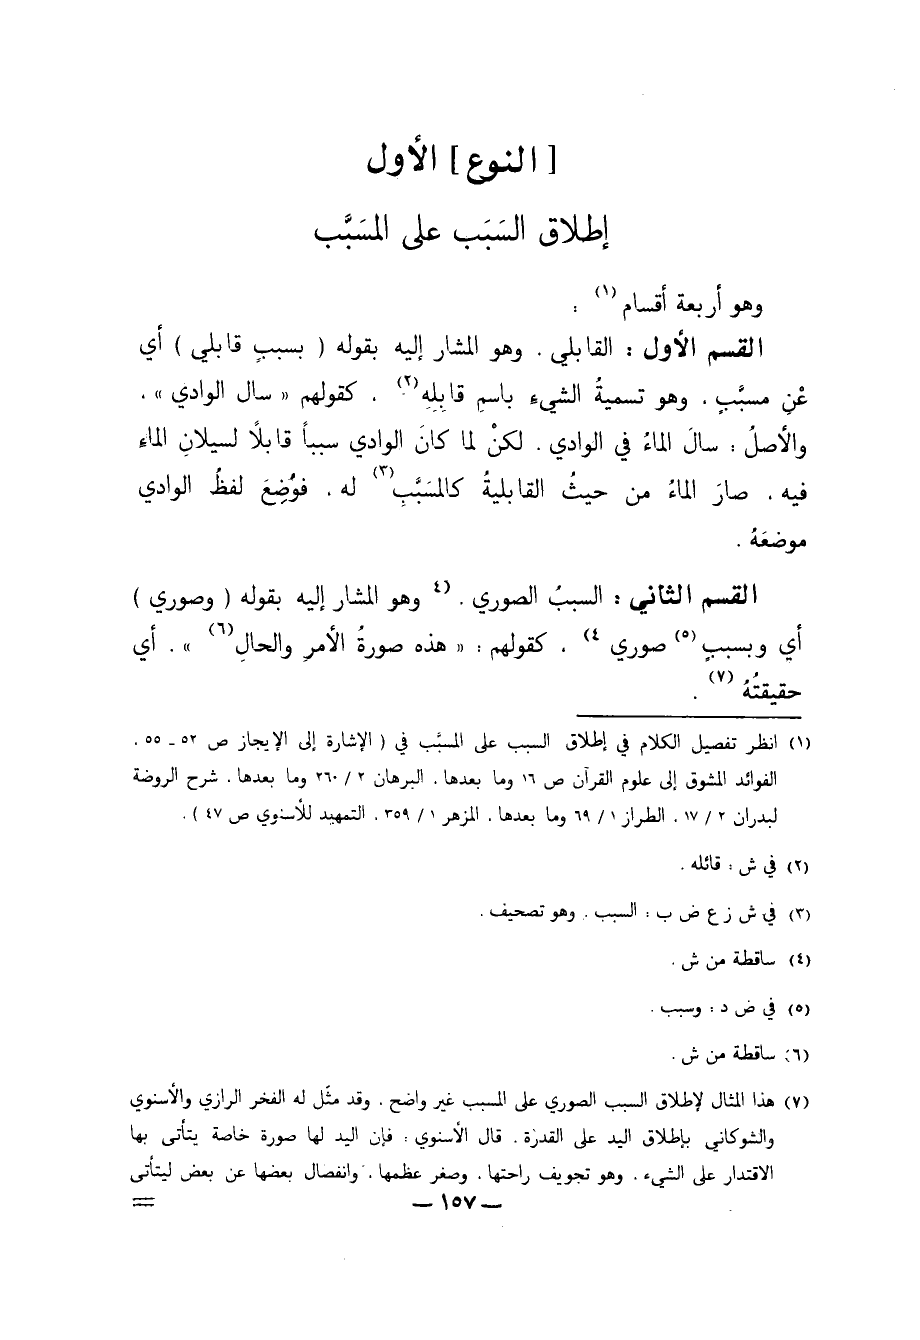 [ النوع ] الأول
إطلاق السَبَب على المسَبَّب
وهو أربعة أقسام (١) :
القسم الأول : القابلي . وهو المشار إليه بقوله ( بسببٍ قابلي ) أي
عْنِ مسبَّبٍ . وهو تسميةُ الشيءِ باسمِ قابِلِهِ (٢) . كقولهم « سال الوادي » .
والأصلُ : سالَ الماءُ في الوادي . لكنْ لما كانَ الوادي سبباً قابلًا لسيلانِ الماءِ
فيه ، صارَ الماءُ من حيثُ القابليةُ كالمسَبَّبِ (٣) له . فوُضِعَ لفظُ الوادي
موضعَهُ .
القسم الثاني : السببُ الصوري . (٤ وهو المشار إليه بقوله ( وصوري )
أي وبسببٍ (٥) صوري ٤) ، كقولهم : « هذه صورةُ الأمرِ والحالِ (٦) » . أي
حقيقتُهُ (٧) .
(١) انظر تفصيل الكلام في إطلاق السبب على المسبَّب في ( الإشارة إلى الإيجاز ص ٥٢ ـ ٥٥ .
الفوائد المشوق إلى علوم القرآن ص ١٦ وما بعدها . البرهان ٢ / ٢٦٠ وما بعدها . شرح الروضة
لبدران ٢ / ١٧ . الطراز ١ / ٦٩ وما بعدها . المزهر ١ / ٣٥٩ . التمهيد للأسنوي ص ٤٧ ) .
(٢) في ش : قائله .
(٣) في ش ز ع ض ب : السبب . وهو تصحيف .
(٤) ساقطة من ش .
(٥) في ض د : وسبب .
(٦) ساقطة من ش .
(٧) هذا المثال لإطلاق السبب الصوري على المسبب غير واضح . وقد مثّل له الفخر الرازي والأسنوي
والشوكاني بإطلاق اليد على القدرة . قال الأسنوي : فإن اليد لها صورة خاصة يتأتى بها
الاقتدار على الشيء . وهو تجويف راحتها . وصغر عظمها . وانفصال بعضها عن بعض ليتأتى
— ١٥٧ —
=